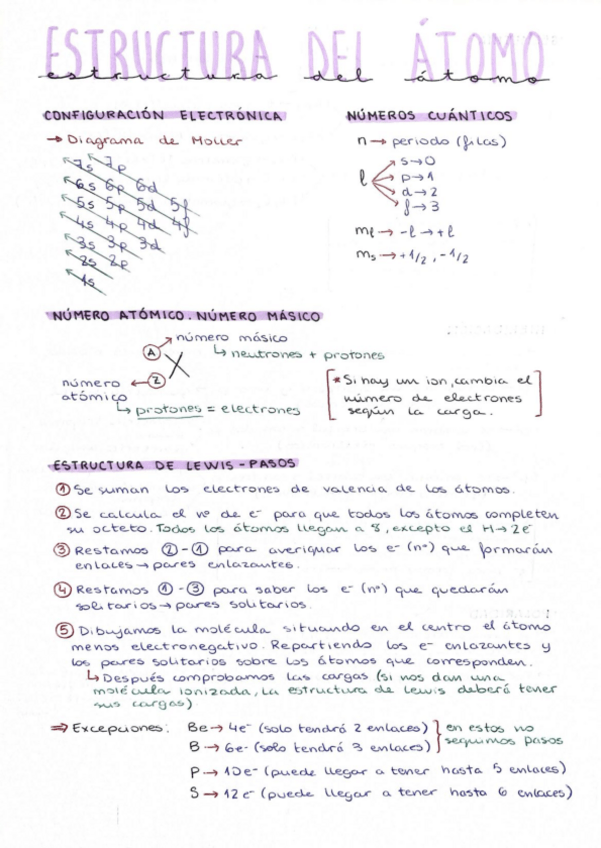 ESTRUCTURA DEL ÁTOMO
estructura del átomo
CONFIGURACIÓN ELECTRÓNICA
→ Diagrama de Moller
7s 7p
6s 6p 6d
5s 5p 5d 5f
4s 4p 4d 4f
3s 3p 3d
2s 2p
1s
NÚMEROS CUÁNTICOS
n → periodo (filas)
l
s → 0
p → 1
d → 2
f → 3
ml → -l → +l
ms → +1/2, -1/2
NÚMERO ATÓMICO. NÚMERO MÁSICO
A → número másico
↳ neutrones + protones
X
número atómico ← Z
↳ protones = electrones
* Si hay un ion, cambia el
número de electrones
según la carga.
ESTRUCTURA DE LEWIS - PASOS
① Se suman los electrones de valencia de los átomos.
② Se calcula el nº de e⁻ para que todos los átomos completen
su octeto. Todos los átomos llegan a 8, excepto el H → 2e⁻
③ Restamos ② - ① para averiguar los e⁻ (nº) que formarán
enlaces → pares enlazantes.
④ Restamos ① - ③ para saber los e⁻ (nº) que quedarán
solitarios → pares solitarios.
⑤ Dibujamos la molécula situando en el centro el átomo
menos electronegativo. Repartiendo los e⁻ enlazantes y
los pares solitarios sobre los átomos que corresponden.
↳ Después comprobamos las cargas (si nos dan una
molécula ionizada, la estructura de Lewis deberá tener
sus cargas)
⇒ Excepciones: Be → 4e⁻ (solo tendrá 2 enlaces)
B → 6e⁻ (solo tendrá 3 enlaces)
en estos no
seguimos pasos
P → 10e⁻ (puede llegar a tener hasta 5 enlaces)
S → 12e⁻ (puede llegar a tener hasta 6 enlaces)